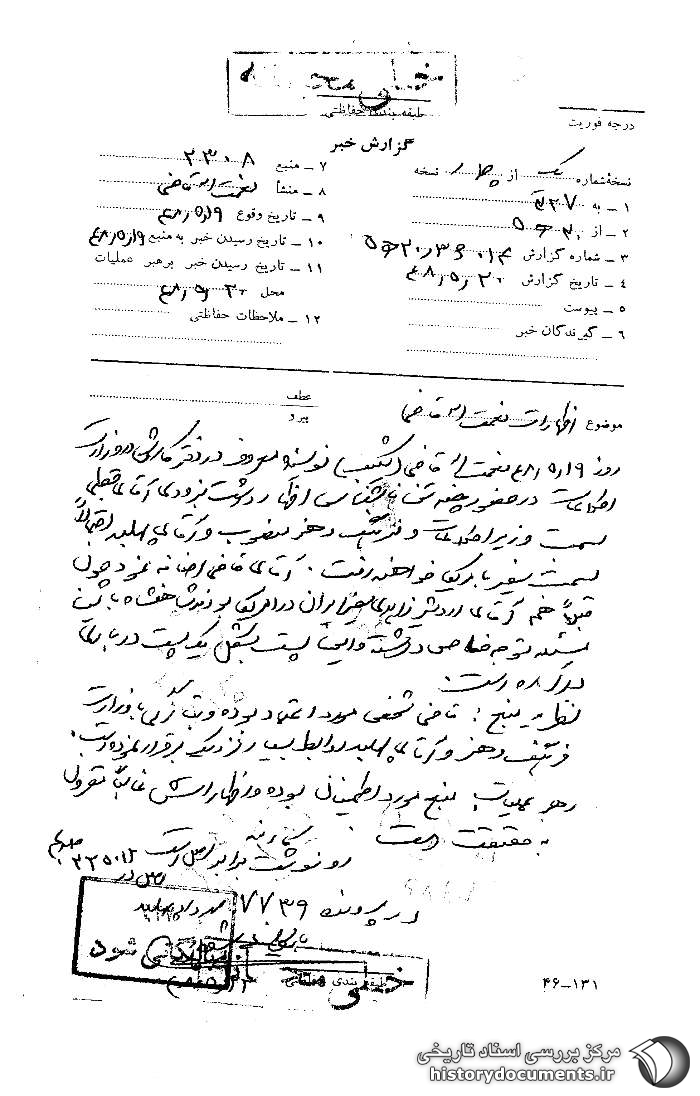 خیلی محرمانه
طبقه بندی حفاظتی
درجه فوریت
گزارش خبر
نسخهٔ شماره یک از چهار نسخه
۱ – به ۳۲۷
۲ – از ۲۰ ه ۵
۳ – شماره گزارش
۴ – تاریخ گزارش ۴۸/۵/۲۰
۵ – پیوست
۶ – گیرندگان خبر
۷ – منبع ۲۳۰۸
۸ – منشأ نعمت اله قاضی
۹ – تاریخ وقوع ۴۸/۵/۱۹
۱۰ – تاریخ رسیدن خبر به منبع ۴۸/۵/۱۹
۱۱ – تاریخ رسیدن خبر برهبر عملیات
محل ۴۸/۵/۲۰
۱۲ – ملاحظات حفاظتی
عطف
پیرو
موضوع اظهارات نعمت اله قاضی
روز ۴۸/۵/۱۹ نعمت اله قاضی (شکیب) نویسنده معروف در دفتر کارش در وزارت
اطلاعات در حضور چند تن اظهار داشت بزودی آقای
بسمت وزیر اطلاعات و فرهنگ و هنر منصوب و آقای پهلبد احتمالاً
بسمت سفیر بامریکا خواهند رفت. آقای قاضی اضافه نمود چون
قبلاً هم آقای اردشیر زاهدی سفیر ایران در امریکا بودند شاهنشاه باین
مسئله توجه خاصی داشته و این پست بشکل یک پست درباری
در آمده است.
نظریه منبع : قاضی شخصی مورد اعتماد بوده و بتازگی با وزارت
فرهنگ و هنر و آقای پهلبد روابط بسیار نزدیک برقرار نموده است.
رهبر عملیات: منبع مورد اطمینان بوده و اظهاراتش غالباً مقرون
به حقیقت است.
رونوشت برابر اصل است
اصل در
در پرونده ۷۷۳۹ مهرداد پهلبد
بایگانی شود
خیلی محرمانه
طبقه بندی حفاظتی
۴۶–۱۳۱
مرکز بررسی اسناد تاریخی
historydocuments.ir